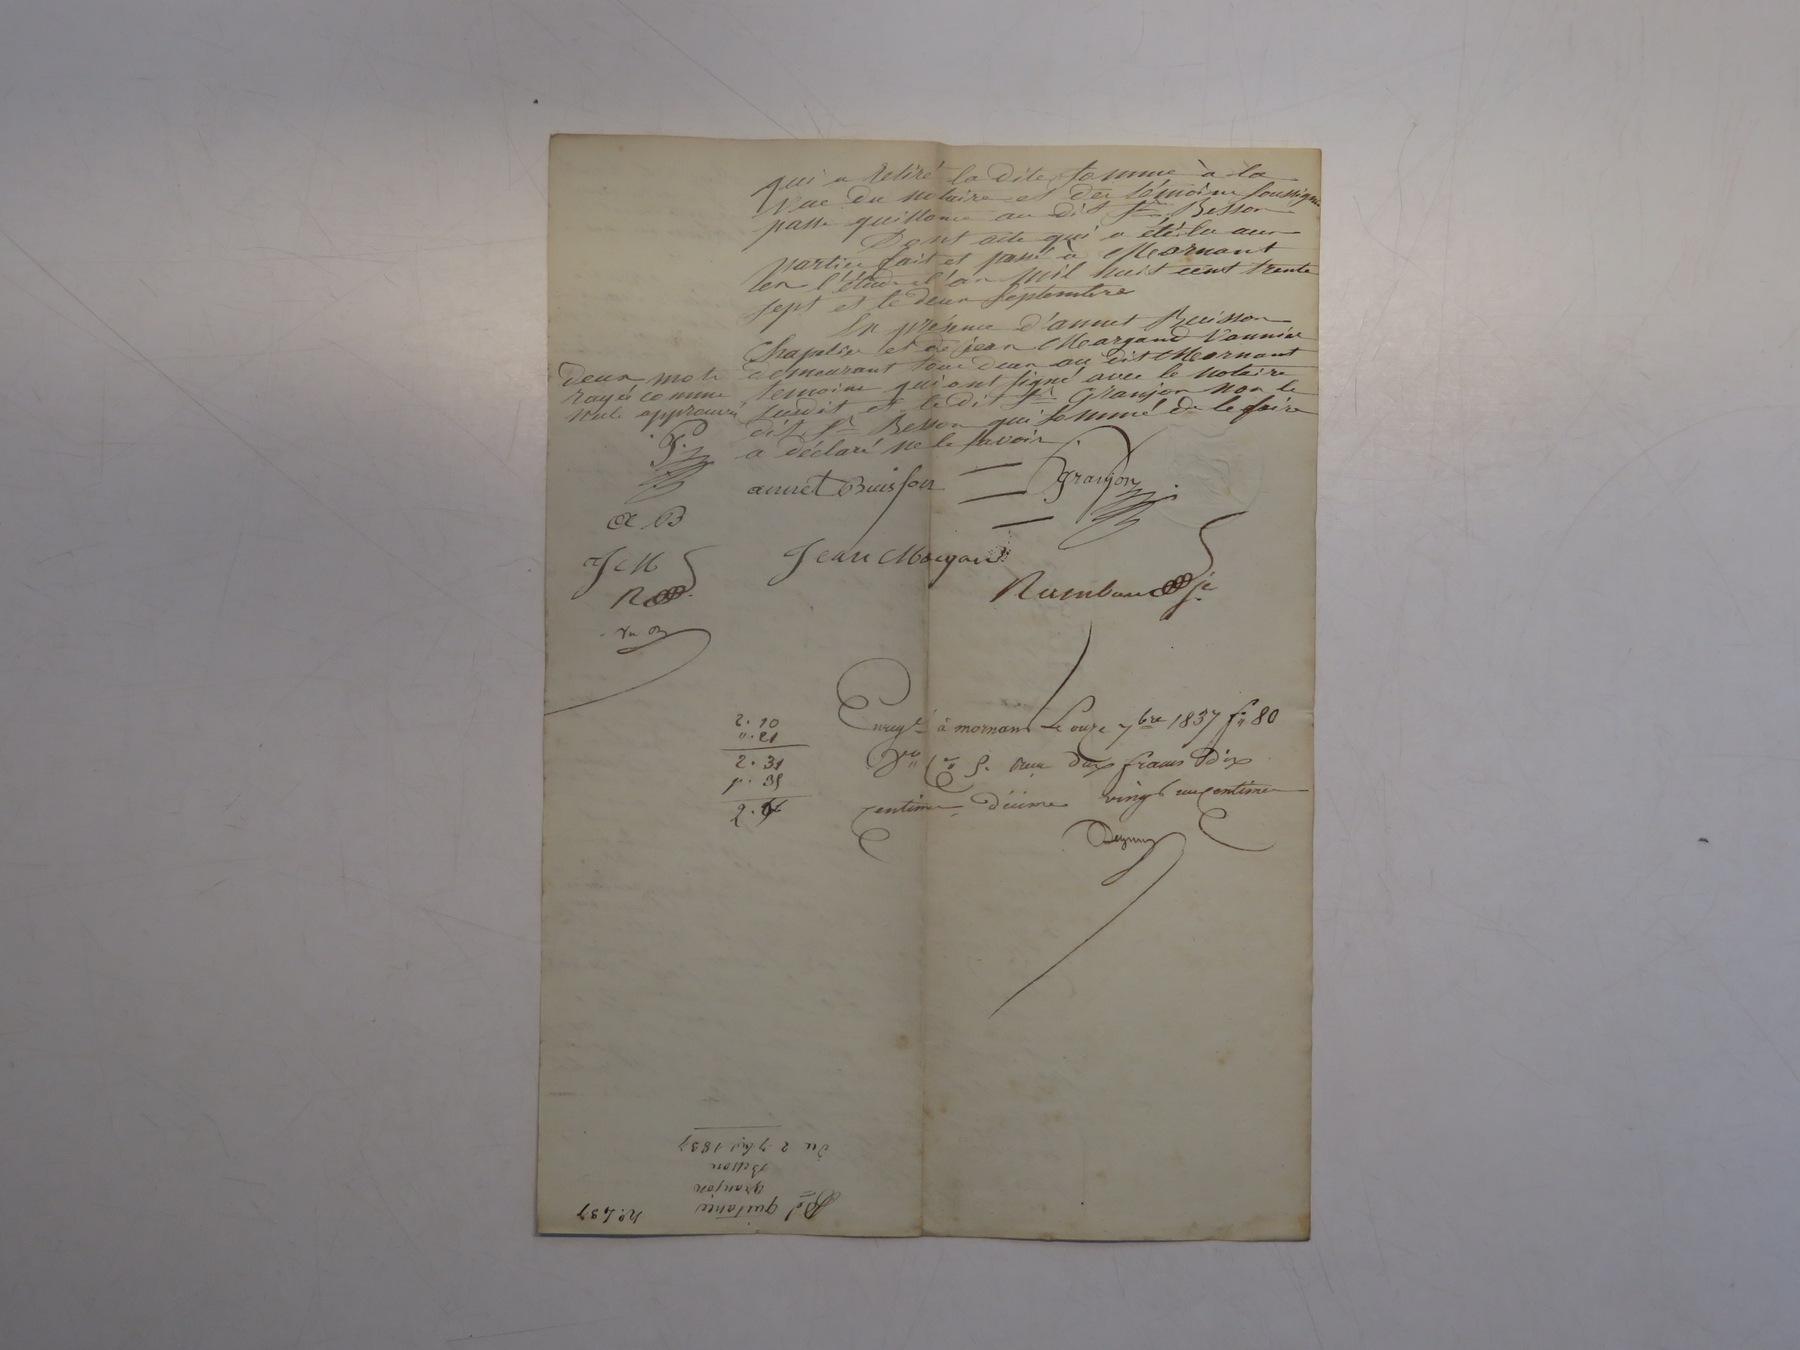 qui a retiré la dite somme à la
vue du notaire et des témoins soussignés
passe quittance au dit Sr. Besson
Dont acte qui a été lu aux
parties fait et passé à Mornant
en l'étude l'an mil huit cent trente
sept et le deux septembre
En présence d'annet Buisson
Chapelier et de jean Margand Vannier
demeurant tous deux au dit Mornant
témoins qui ont signé avec le notaire
susdit et le dit Sr. Granjon non le
dit Sr. Besson qui sommé de le faire
a déclaré ne le savoir.
deux mots
rayés comme
nuls approuvé
annet Buisson
Granjon
A B
J M
Jean Margand
R
Enregt. à mornant le onze 7bre 1837 f° 80
Vo Ce 5. reçu deux francs dix
centimes Décime vingt un centimes
2. 10
". 21
2. 31
2.
du 2 7bre 1837
Besson
granjon
quitance
N°. 437